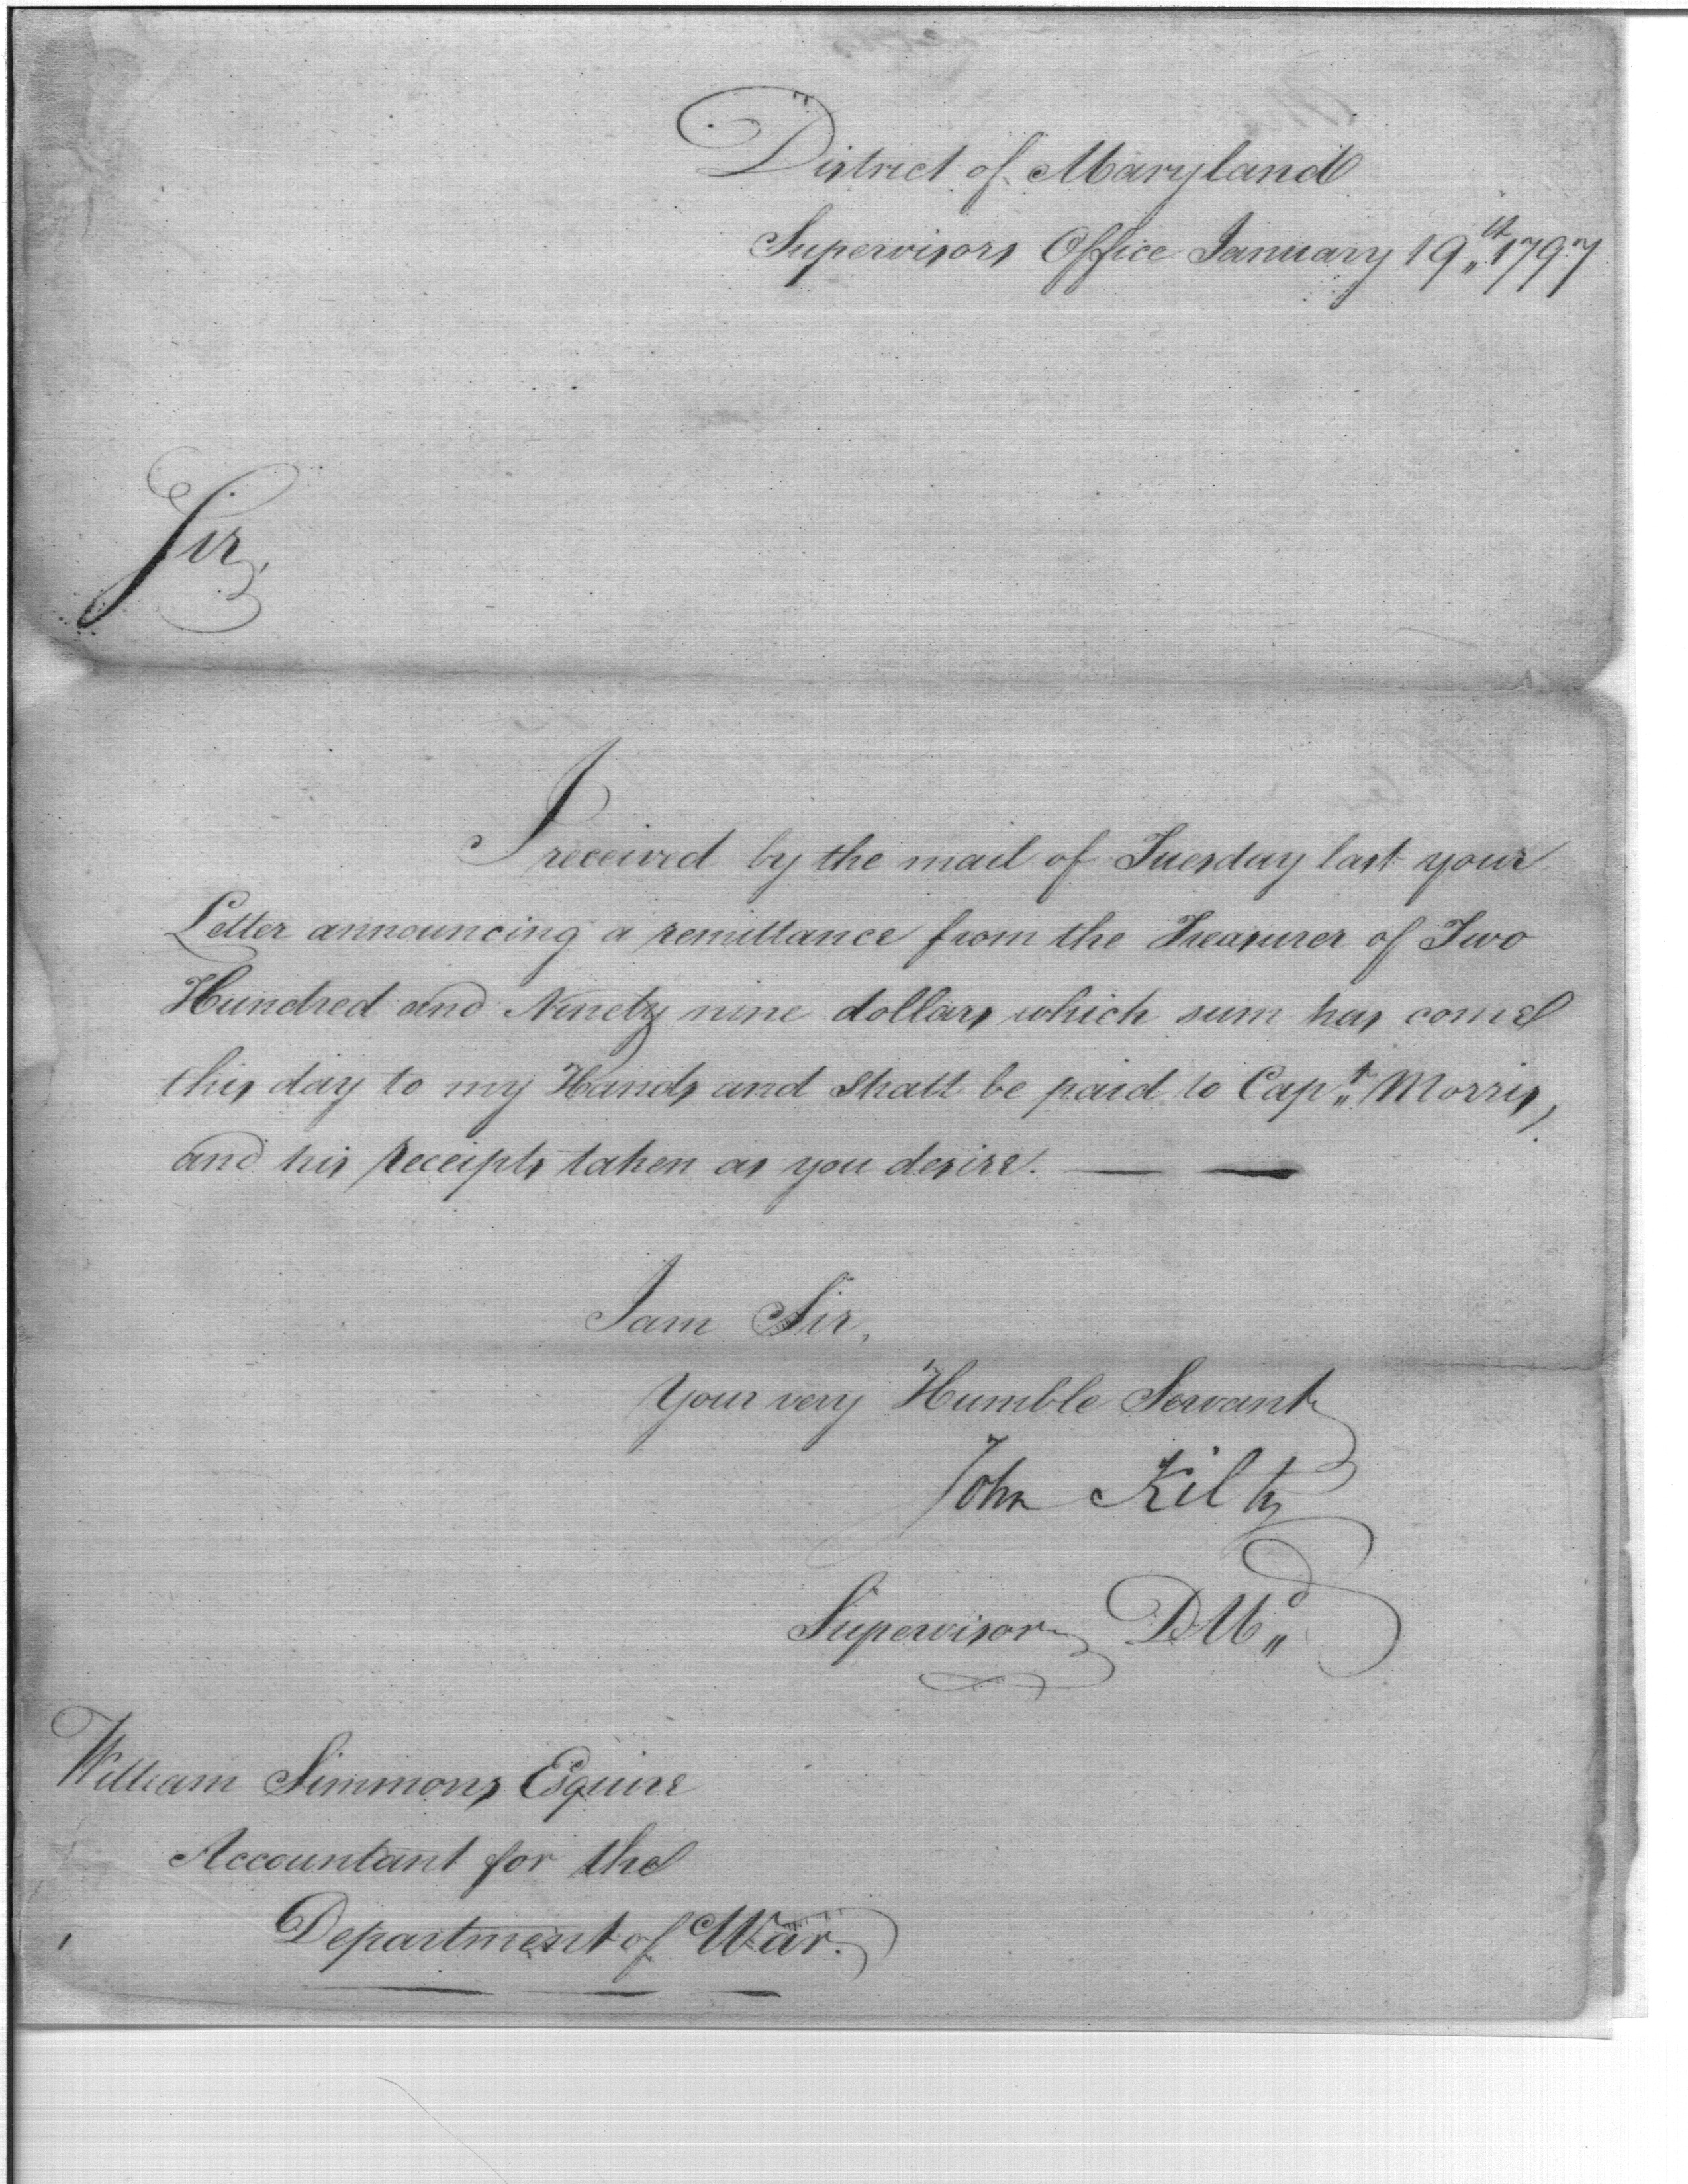 District of Maryland
Supervisors Office January 19th 1797
Sir,
I received by the mail of Tuesday last your
Letter announcing a remittance from the Treasurer of Two
Hundred and Ninety nine dollars which sum has come
this day to my Hands and shall be paid to Capt. Morris,
and his receipts taken as you desire. — —
I am Sir,
Your very Humble Servant
John Kilty
Supervisor DMd
William Simmons Esquire
Accountant for the
Department of War.